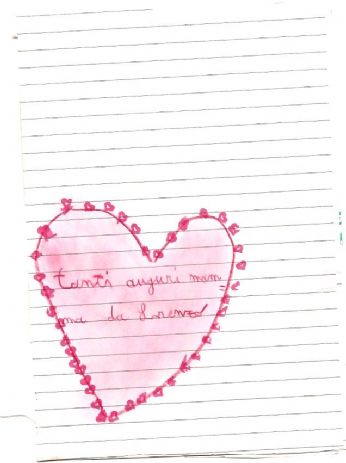 tanti auguri mam=
ma da Lorenzo